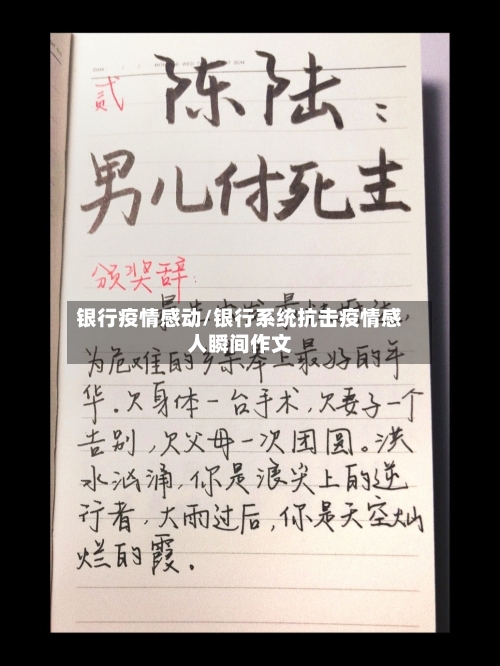 贰 陈陆:
男儿付死生
颁奖辞:
银行疫情感动/银行系统抗击疫情感
人瞬间作文
为危难的乡亲奉上最好的年
华。欠身体一台手术,欠妻子一个
告别,欠父母一次团圆。洪
水汹涌,你是浪尖上的逆
行者,大雨过后,你是天空灿
烂的霞.